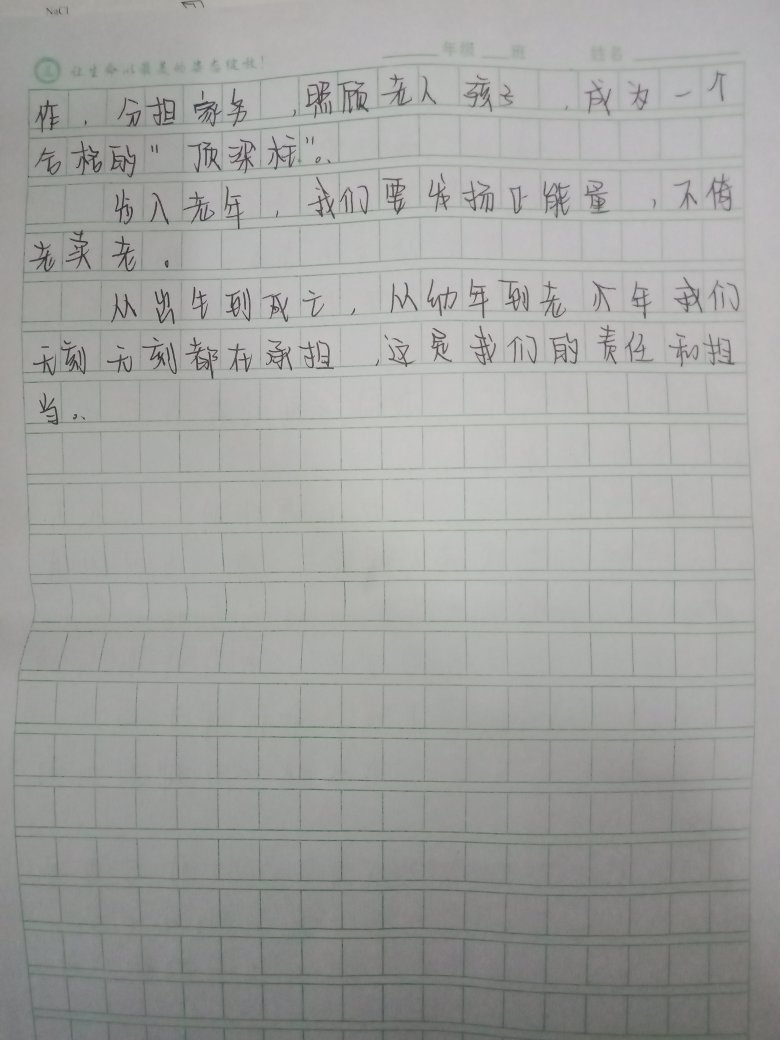 NaCl
让生命以最美的姿态绽放！ 年级 班 姓名
作，分担家务，照顾老人孩子，成为一个
合格的"顶梁柱"。
步入老年，我们要发扬正能量，不倚
老卖老。
从出生到成亡，从幼年到老 年我们
无刻无刻都在承担，这是我们的责任和担
当。